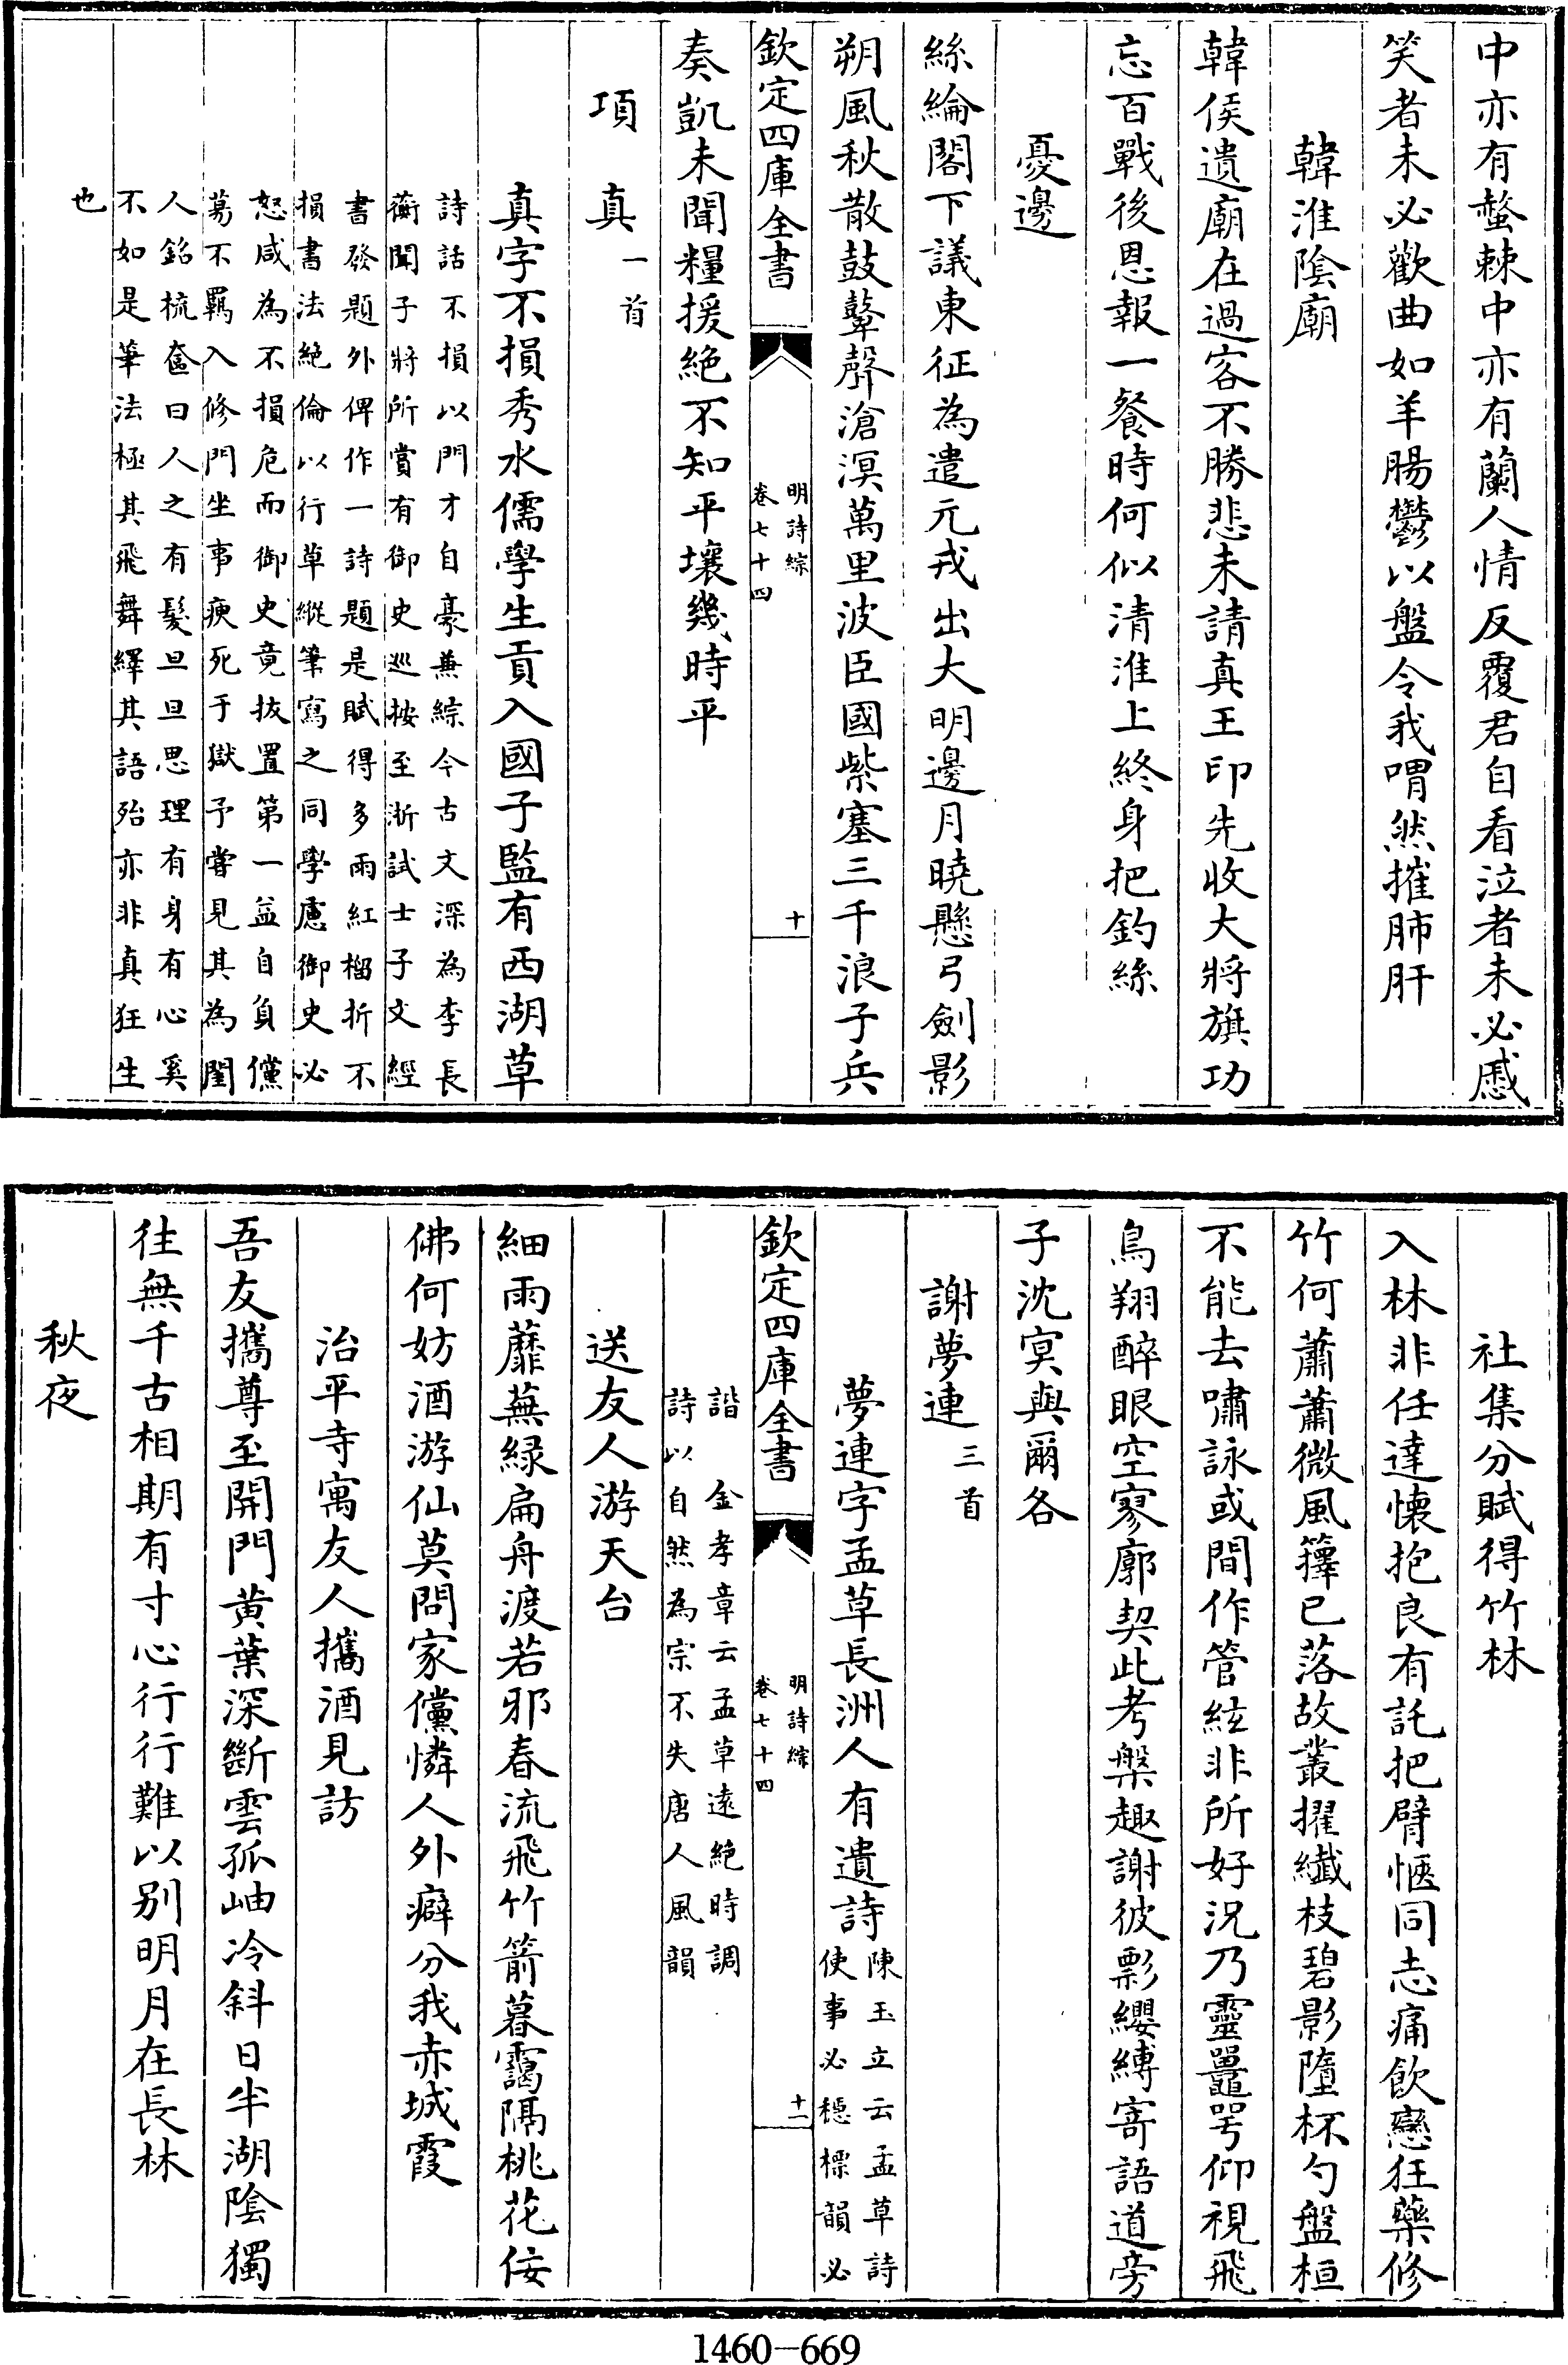 中亦有螯棘中亦亦有蘭人情反覆君自看泣者未必慼
笑者未必歡曲如羊腸鬱以盤令我喟然摧肺肝
韓淮陰廟
韓侯遺廟在過客不勝悲未請真王印先收大將旗功
忘百戰後恩報一餐時何似清淮上終身把釣絲
憂邊
絲綸閣下議東征為遣元戎出大明邊月曉懸弓劍影
朔風秋散鼓鼙聲滄溟萬里波臣國紫塞三千浪子兵
欽定四庫全書
明詩綜
卷七十四
十
奏凱未聞糧援絶不知平壤幾時平
項真一首
真字不損秀水儒學生貢入國子監有西湖草
詩話不損以門才自豪兼綜今古文深為李長
蘅聞子將所賞有御史巡按至浙試士子文經
書發題外俾作一詩題是賦得多雨紅榴折不
損書法絶倫以行草縱筆寫之同學慮御史必
怒咸為不損危而御史竟拔置第一益自負儻
蕩不羈入修門坐事瘐死于獄予嘗見其為閨
人銘梳奩曰人之有髮旦旦思理有身有心奚
不如是筆法極其飛舞繹其語殆亦非真狂生
也
社集分賦得竹林
入林非任達懐抱良有託把臂愜同志痛飲戀狂藥修
竹何蕭蕭微風籜已落故叢擢纎枝碧影墮杯勺盤桓
不能去嘯詠或間作管絃非所好況乃靈鼉咢仰視飛
鳥翔醉眼空寥廓契此考槃趣謝彼影纓縛寄語道旁
子沈冥與爾各
謝夢連三首
夢連字孟草長洲人有遺詩
陳玉立云孟草詩
使事必穩標韻必
欽定四庫全書
明詩綜
卷七十四
十一
諧　金孝章云孟草逺絶時調
詩以自然為宗不失唐人風韻
送友人游天台
細雨蘼蕪緑扁舟渡若邪春流飛竹箭暮靄隔桃花佞
佛何妨酒游仙莫問家儻憐人外癖分我赤城霞
治平寺寓友人攜酒見訪
吾友攜尊至開門黄葉深斷雲孤岫冷斜日半湖陰獨
往無千古相期有寸心行行難以别明月在長林
秋夜
1460-669